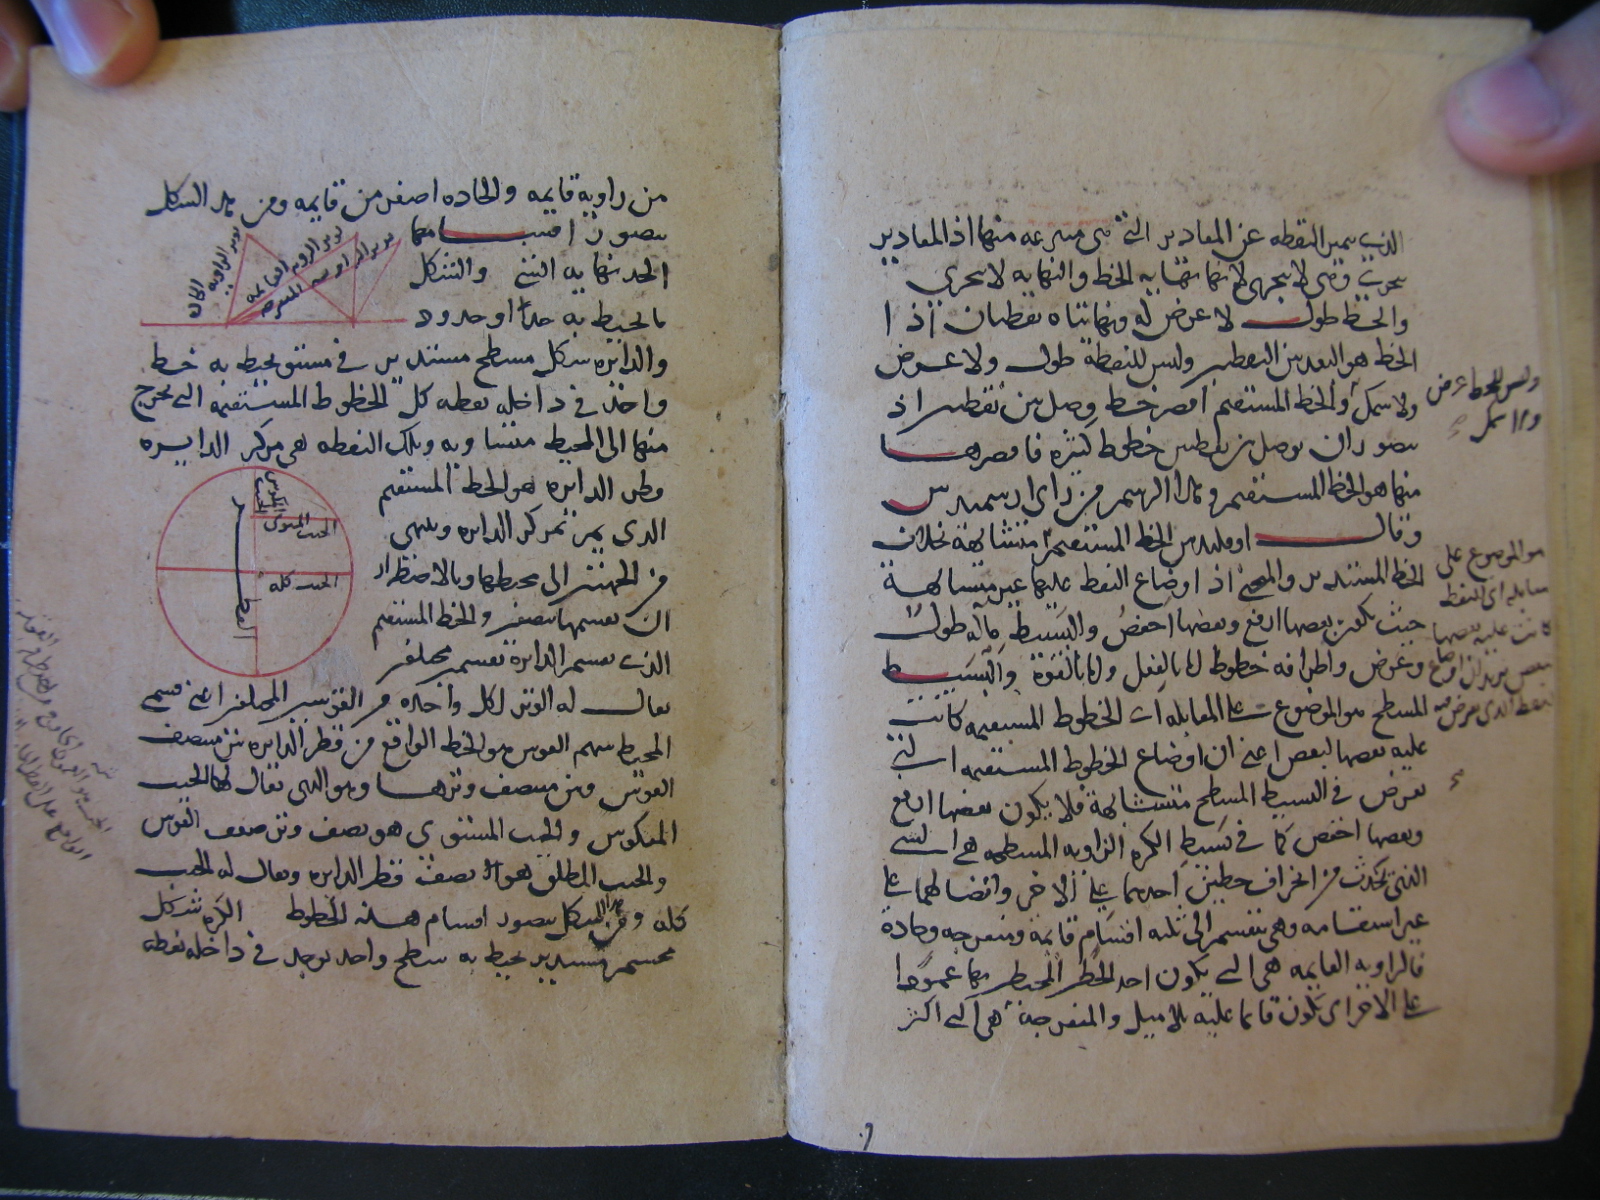 الذي يميز النقطه عن المقادير التي هي مبرعه منها اذ المقادير
تتجزى وهي لا تتجزى لانها نهايه الخط والنهايه لا تتجزى
والخط طول لا عرض له ونهايتاه نقطتان اذ ا
الخط هو البعد بين النقطتين وليس للنقطة طول ولا عرض
ولا سمك والخط المستقيم اقصر خط وصل بين نقطتين اذ
يتصور ان يوصل بين نقطتين خطوط كثيره فاقصرها
منها هو الخط المستقيم وهذا الرسم من راى ارشميدس
وقال اوقليدس الخط المستقيم متشابهة بخلاف
الخط المستدير والمنحني اذ اوضاع النقط عليهما غير متشابهة
حيث يكون بعضها ارفع وبعضها اخفض والبسيط ماله طول
وعرض واطرافه خطوط اما بالفعل واما بالقوة والبسيط
المسطح هو الموضوع على المقابله اى الخطوط المستقيمه كانت
عليه بعضها لبعض اعني ان اوضاع الخطوط المستقيمه التي
تعرض في البسيط المسطح متشابهة فلا يكون بعضها ارفع
وبعضها اخفض كما في بسيط الكرة الزاويه المسطحه هي التي
التي تحدث من انحراف خطين احدهما على الاخر واتصالهما على
غير استقامه وهي تنقسم الى ثلثه اقسام قائمة ومنفرجه وحادة
فالزاويه القايمه هي التي يكون احد الخطين المحيطين بها عمودا
على الاخر اى يكون قائما عليه بلا ميل والمنفرجه هي التي اكثر
وليس للخط عرض
ولا سمك
هو الموضوع على
مقابله اى النقط
كانت عليه بعضها
لبعض يريد ان اوضاع
النقط الذي تعرض فيه
من زاويه قايمه والحاده اصغر من قايمه ومن هذا الشكل
يتصور اقسامها
الحد نهايه الشئ والشكل
ما يحيط به حد او حدود
والدايره شكل مسطح مستدير في مستو يحيط به خط
واحد في داخله نقطه كل الخطوط المستقيمه التي تخرج
منها الى المحيط متساويه وتلك النقطه هي مركز الدايره
وقطر الدايره هو الخط المستقيم
الذي يمر بمركز الدايره وينتهي
من الجهتين الى محيطها وبالاضطرار
ان يقسمها بنصفين والخط المستقيم
الذي يقسم الدايرة بقسمين مختلفين
يقال له الوتر لكل واحده من القوسين المختلفين اعني قسمي
المحيط سهم القوس هو الخط الواقع من قطر الدايره بين منتصف
القوس وبين منتصف وترها وهو الذي يقال لها الجيب
المنكوس والجيب المستوى هو نصف وتر ضعف القوس
والجيب المطلق هو نصف قطر الدايره ويقال له الجيب
كله ومن هذا الشكل يتصور اقسام هذه الخطوط الكره شكل
مجسم مستدير يحيط به سطح واحد يوجد في داخله نقطه
الزاويه القايمه
الزاويه المنفرجه
الجيب المنكوس
الجيب المستوى
الجيب كله
القطر